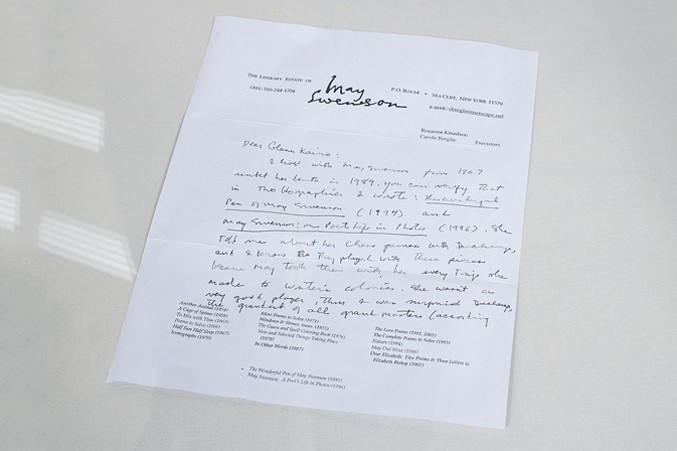 The Literary Estate of
May
Swenson
P.O. Box • Sea Cliff, New York 11579
Office: 516-244-3704
e-mail:
Rozanne Knudson
Carole Berglie
Executors
Dear Glenn Kaino:
I lived with May Swenson from 1967
until her death in 1989. you can verify that
in two biographies I wrote: The Wonderful
Pen of May Swenson (1994) and
May Swenson: a Poet's Life in Photos (1996). She
told me about her chess games with Duchamp,
and I know that they played with these pieces
because May took them with her every trip she
made to writer's colonies. She wasn't a
very good player, thus I was surprised Duchamp,
the grandest of all grand masters (according
Another Animal (1954)
A Cage of Spines (1958)
To Mix with Time (1963)
Poems to Solve (1966)
Half Sun Half Sleep (1967)
Iconographs (1970)
More Poems to Solve (1971)
Windows & Stones, trans. (1972)
The Guess and Spell Coloring Book (1976)
New and Selected Things Taking Place
(1978)
In Other Words (1987)
The Love Poems (1991, 2003)
The Complete Poems to Solve (1993)
Nature (1994)
May Out West (1996)
Dear Elizabeth: Five Poems & Three Letters to
Elizabeth Bishop (2000)
• The Wonderful Pen of May Swenson (1993)
May Swenson: A Poet's Life in Photos (1996)